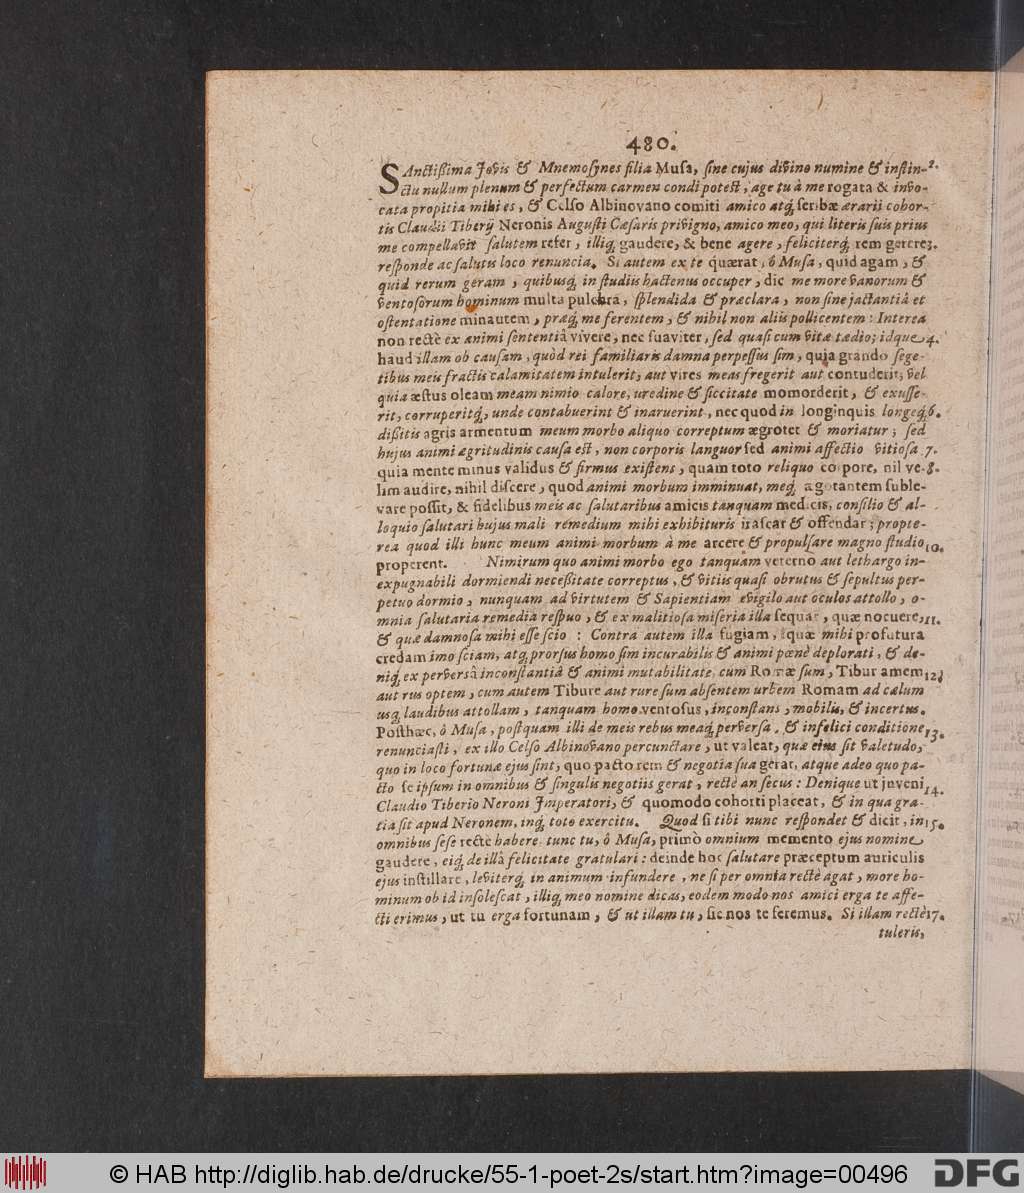 480.
SAnctißima Jovis & Mnemosynes filia Musa, sine cujus divino numine & instin- 2.
ctu nullum plenum & perfectum carmen condi potest, age tu à me rogata & invo-
cata propitia mihi es, & Celso Albinovano comiti amico atq; scribæ ærarii cohor-
tis Claudii Tiberij Neronis Augusti Cæsaris privigno, amico meo, qui literis suis prius
me compellavit salutem refer, illiq; gaudere, & bene agere, feliciterq; rem gerere 3.
responde ac salutis loco renuncia. Si autem ex te quærat, ô Musa, quid agam, &
quid rerum geram, quibusq; in studiis hactenus occuper, dic me more vanorum &
ventosorum hominum multa pulchra, splendida & præclara, non sine jactantiâ et
ostentatione minautem, præq; me ferentem, & nihil non aliis pollicentem: Interea
non rectè ex animi sententiâ vivere, nec suaviter, sed quasi cum vitæ tædio; idque 4.
haud illam ob causam, quòd rei familiaris damna perpessus sim, quia grando sege-
tibus meis fractis calamitatem intulerit, aut vires meas fregerit aut contuderit, vel
quia æstus oleam meam nimio calore, uredine & siccitate momorderit, & exusse-
rit, corruperitq;, unde contabuerint & inaruerint, nec quod in longinquis longeq; 6.
dißitis agris armentum meum morbo aliquo correptum ægrotet & moriatur; sed
hujus animi ægritudinis causa est, non corporis languor sed animi affectio vitiosa 7.
quia mente minus validus & firmus existens, quam toto reliquo corpore, nil ve- 8.
lim audire, nihil discere, quod animi morbum imminuat, meq; ægotantem suble-
vare possit, & fidelibus meis ac salutaribus amicis tanquam medicis, consilio & al-
loquio salutari hujus mali remedium mihi exhibituris irascar & offendar; propte-
rea quod illi hunc meum animi morbum à me arcere & propulsare magno studio 10.
properent. Nimirum quo animi morbo ego tanquam veterno aut lethargo in-
expugnabili dormiendi neceßitate correptus, & vitiis quasi obrutus & sepultus per-
petuo dormio, nunquam ad virtutem & Sapientiam evigilo aut oculos attollo, o-
mnia salutaria remedia respuo, & ex malitiosa miseria illa sequar, quæ nocuere, 11.
& quæ damnosa mihi esse scio: Contra autem illa fugiam, quæ mihi profutura
credam imo sciam, atq; prorsus homo sim incurabilis & animi pœnè deplorati, & de-
niq; ex perversâ inconstantiâ & animi mutabilitate, cum Romæ sum, Tibur amem 12.
aut rus optem, cum autem Tibure aut rure sum absentem urbem Romam ad cælum
usq; laudibus attollam, tanquam homo ventosus, inconstans, mobilis, & incertus.
Posthæc, ô Musa, postquam illi de meis rebus meaq; perversa, & infelici conditione 13.
renunciasti, ex illo Celso Albinovano percunctare, ut valeat, quæ ejus sit valetudo,
quo in loco fortunæ ejus sint, quo pacto rem & negotia sua gerat, atque adeo quo pa-
cto se ipsum in omnibus & singulis negotiis gerat, rectè an secus: Denique ut juveni 14.
Claudio Tiberio Neroni Imperatori, & quomodo cohorti placeat, & in qua gra-
tia sit apud Neronem, inq; toto exercitu. Quod si tibi nunc respondet & dicit, in 15.
omnibus sese rectè habere, tunc tu, ô Musa, primò omnium memento ejus nomine
gaudere, eiq; de illâ felicitate gratulari: deinde hoc salutare præceptum auriculis
ejus instillare, leviterq; in animum infundere, ne si per omnia rectè agat, more ho-
minum ob id insolescat, illiq; meo nomine dicas, eodem modo nos amici erga te affe-
cti erimus, ut tu erga fortunam, & ut illam tu, sic nos te feremus. Si illam rectè 17.
tuleris,
© HAB http://diglib.hab.de/drucke/55-1-poet-2s/start.htm?image=00496
DFG